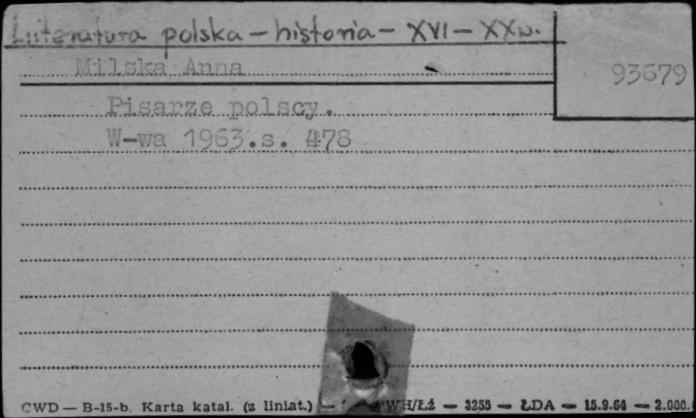 Literatura polska - historia - XVI - XXw.
Milska Anna
93679
Pisarze polscy.
W-wa 1963.s. 478
CWD — B-15-b. Karta katal. (z liniat.) — WH/Łź — 3255 — ŁDA — 15.9.64 — 2.000